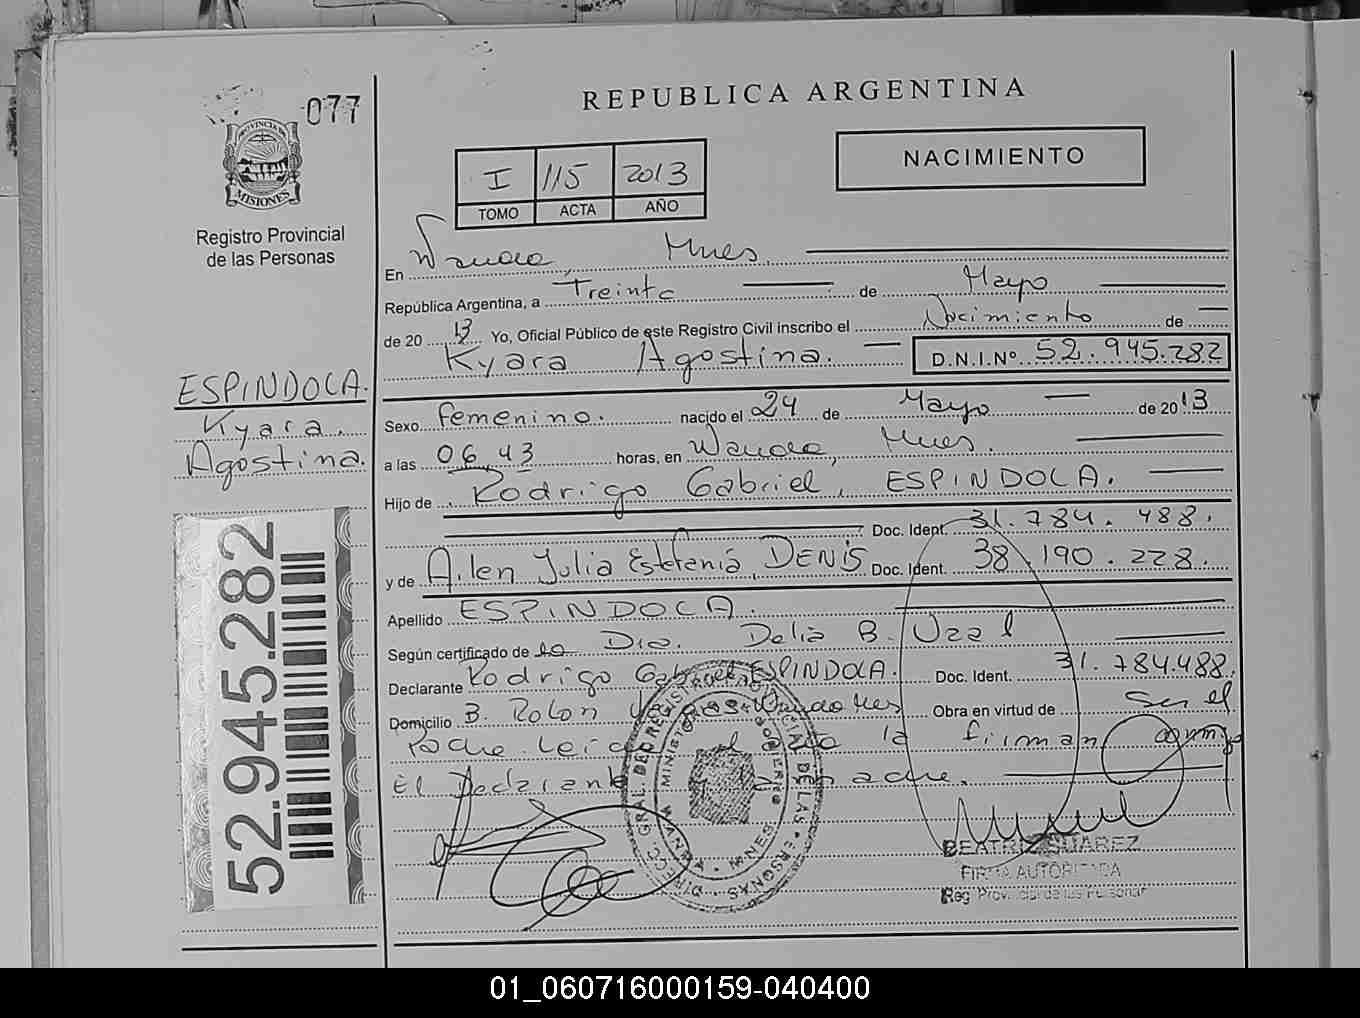 077
REPUBLICA ARGENTINA
PROVINCIA DE
MISIONES
Registro Provincial
de las Personas
I 115 2013
TOMO ACTA AÑO
NACIMIENTO
En Wanda, Mnes.
República Argentina, a Treinta de Mayo
de 20 13 Yo, Oficial Público de este Registro Civil inscribo el Nacimiento de
Kyara Agostina. D.N.I.Nº 52.945.282
ESPINDOLA.
Kyara.
Agostina.
Sexo femenino. nacido el 24 de Mayo de 20 13
a las 06,43 horas, en Wanda, Mnes.
Hijo de Rodrigo Gabriel, ESPINDOLA.
Doc. Ident. 31.784.488.
y de Ailen Julia Estefenia, DENIS Doc. Ident. 38.190.228.
Apellido ESPINDOLA.
Según certificado de la Dra. Delia B. Uzal
Declarante Rodrigo Gabriel ESPINDOLA. Doc. Ident. 31.784.488.
Domicilio B. Rolon Wanda Mnes Obra en virtud de Ser el
Padre. Leida el acta la firman
El Declarante madre.
52.945.282
BEATRIZ SUAREZ
FIRMA AUTORIZADA
Reg. Provincial de las Personas
01_060716000159-040400